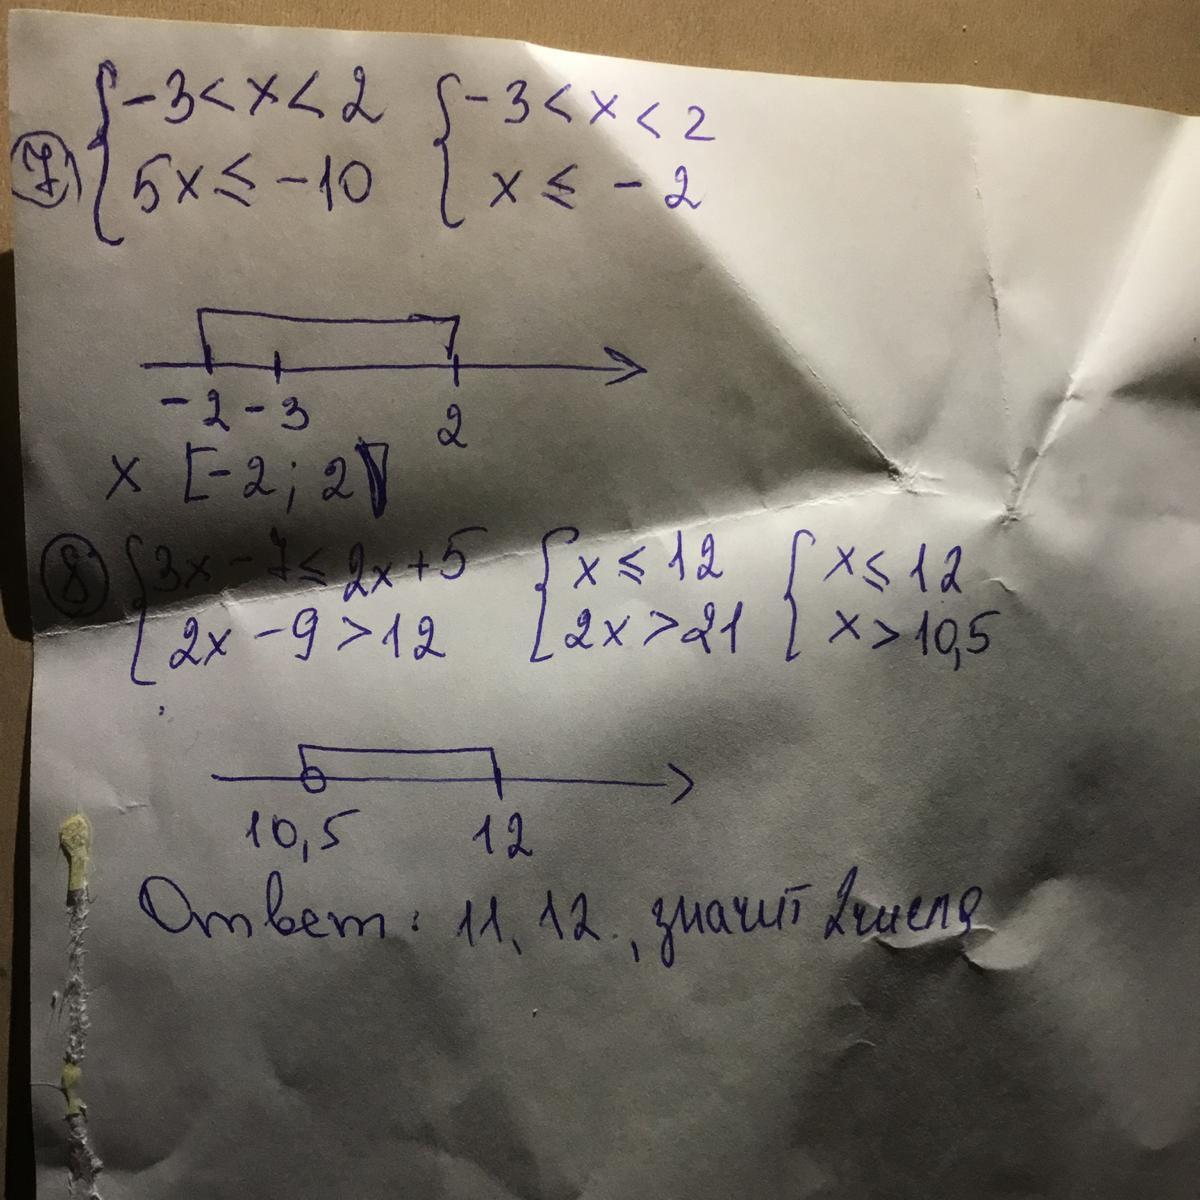 7 { -3 < x < 2 { -3 < x < 2
5x ≤ -10 x ≤ -2
-2 -3 2
x [-2; 2]
8 { 3x - 7 ≤ 2x + 5 { x ≤ 12 { x ≤ 12
2x - 9 > 12 2x > 21 x > 10,5
10,5 12
Ответ: 11, 12., значит 2 числа